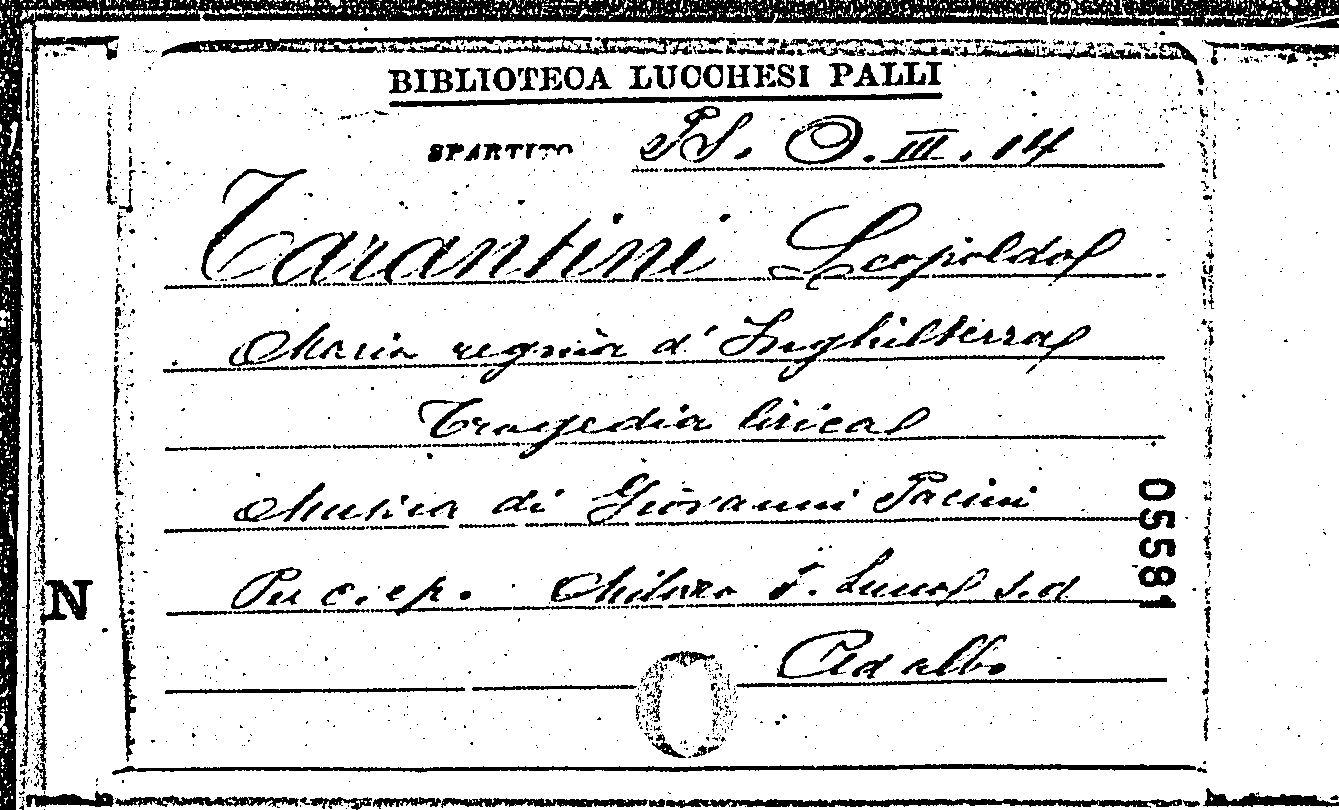 BIBLIOTECA LUCCHESI PALLI
SPARTITO PS. O. III. 14
Tarantini Leopoldo
Maria regina d'Inghilterra
Tragedia lirica
Musica di Giovanni Pacini
Per c. e p. Milano F. Lucca s.d
Ad albo
05581
N